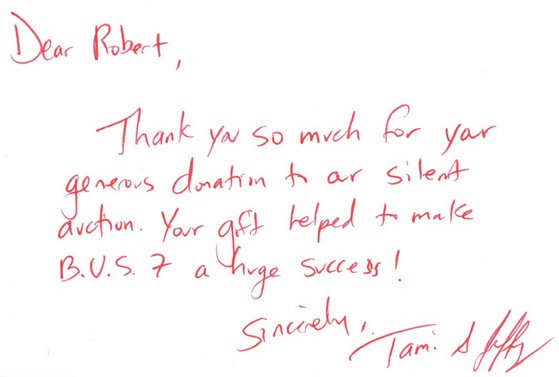 Dear Robert,
Thank you so much for your
generous donation to our silent
auction. Your gift helped to make
B.U.S. 7 a huge success!
Sincerely,
Tami